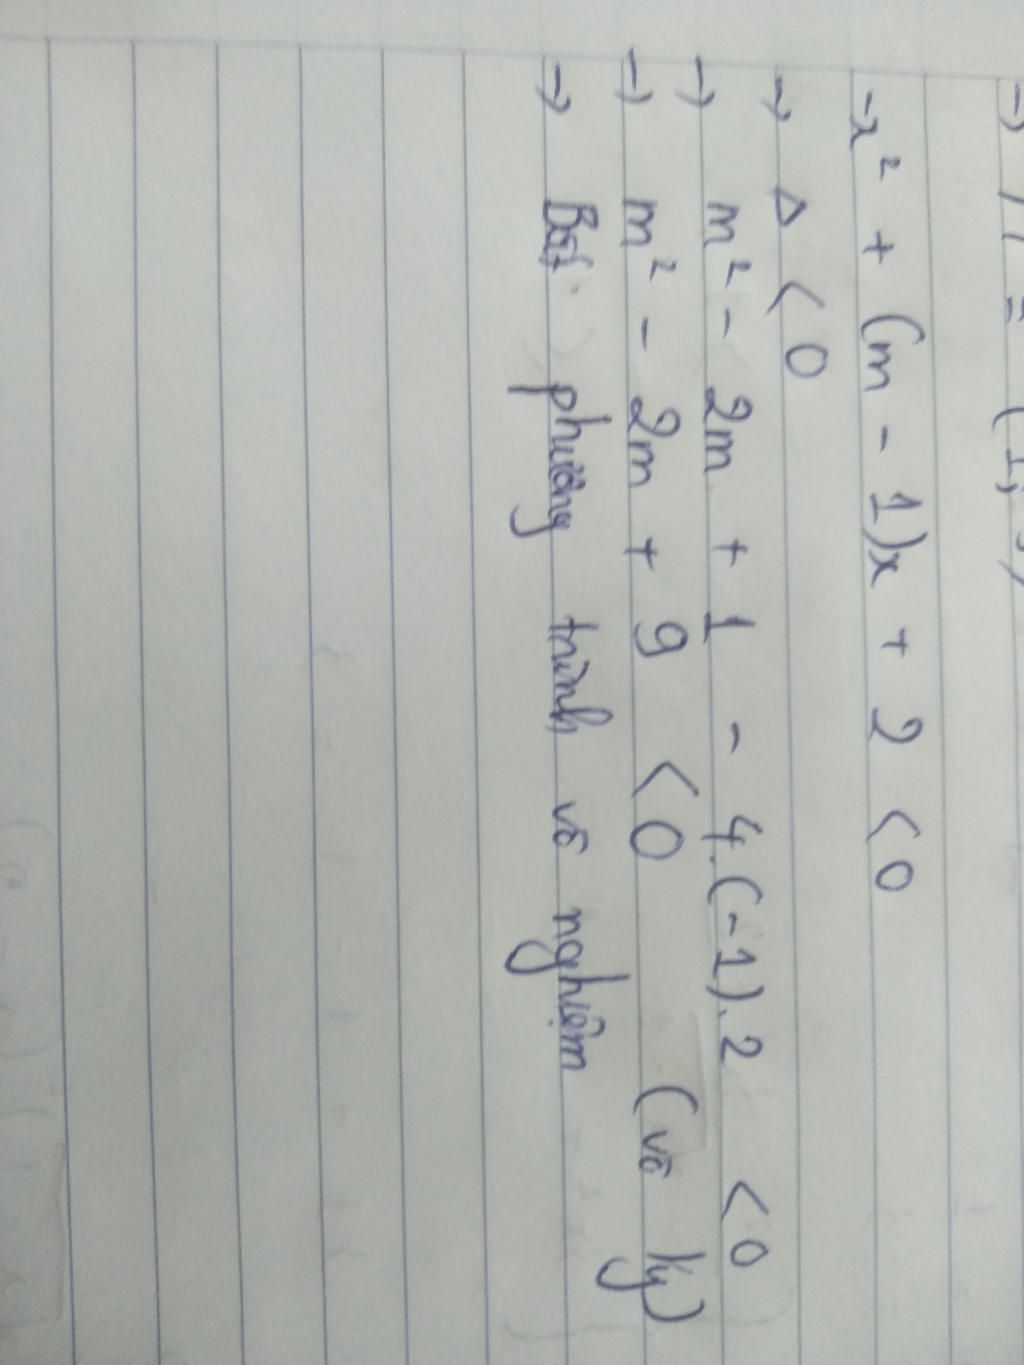 -x² + (m - 1)x + 2 < 0
→ Δ < 0
→ m² - 2m + 1 - 4.(-1).2 < 0
→ m² - 2m + 9 < 0 (vô lý)
→ Bất phương trình vô nghiệm